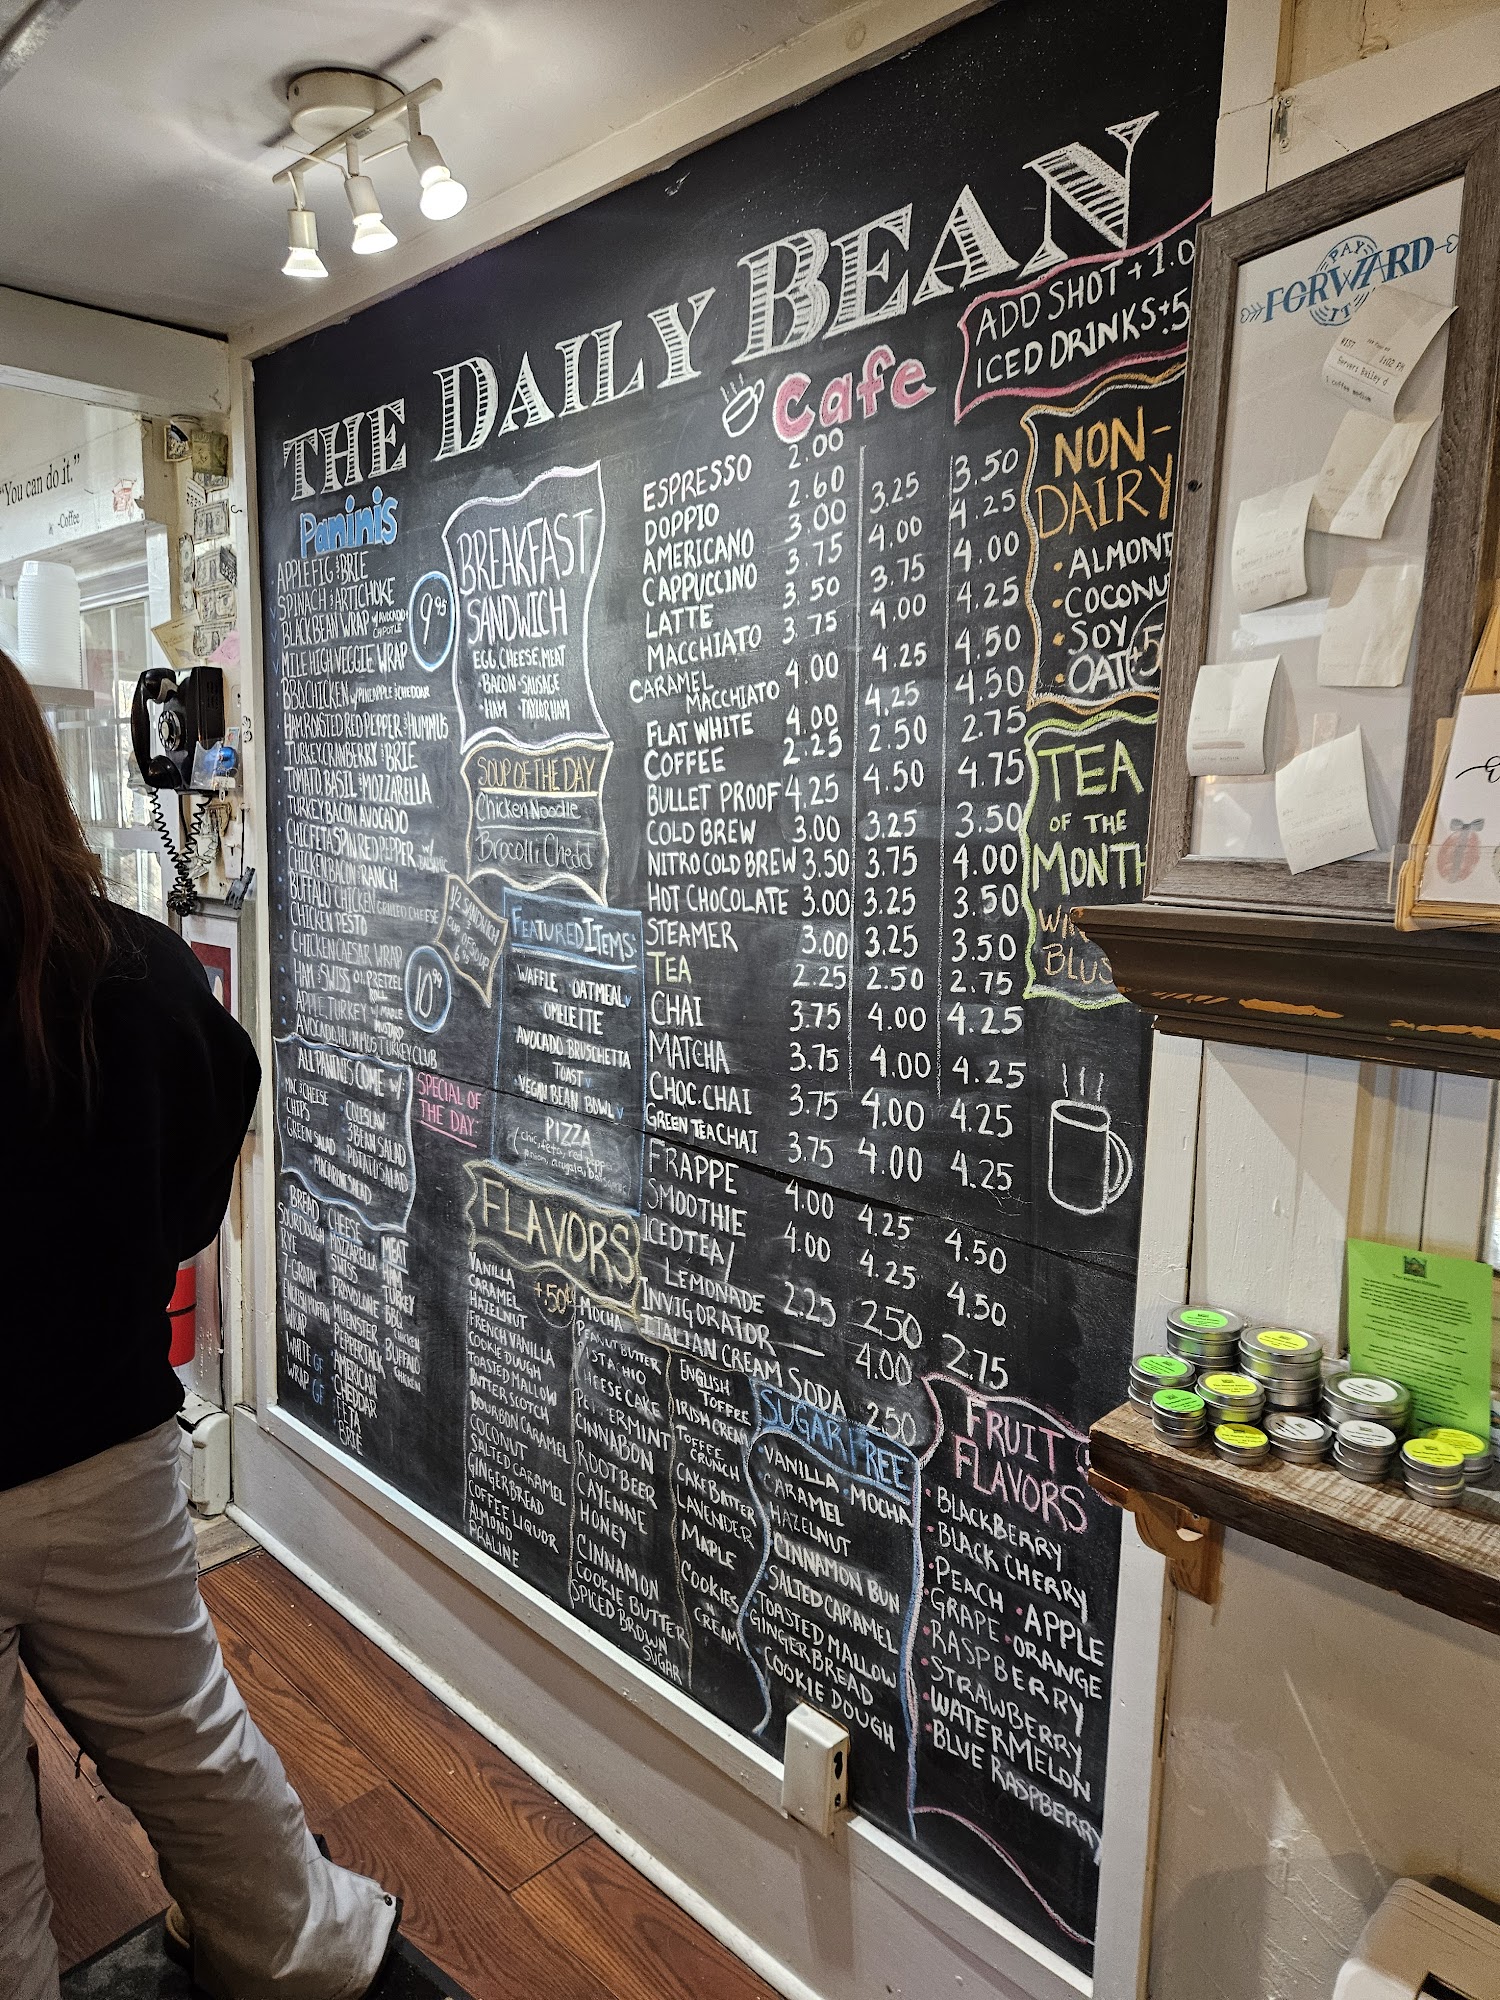 THE DAILY BEAN
Cafe
ADD SHOT + 1.0
ICED DRINKS +.5
Paninis
APPLE FIG & BRIE
SPINACH & ARTICHOKE
BLACK BEAN WRAP W/ AVOCADO &
CHIPOTLE
MILE HIGH VEGGIE WRAP
BBQ CHICKEN W/ PINEAPPLE & CHEDDAR
HAM, ROASTED RED PEPPER & HUMMUS
TURKEY, CRANBERRY & BRIE
TOMATO, BASIL & MOZZARELLA
TURKEY BACON AVOCADO
CHIC FETA SPIN RED PEPPER W/
BALSAMIC
CHICKEN BACON RANCH
BUFFALO CHICKEN GRILLED CHEESE
CHICKEN PESTO
CHICKEN CAESAR WRAP
HAM & SWISS ON PRETZEL
ROLL
APPLE, TURKEY W/ MAPLE
MUSTARD
AVOCADO, HUMMUS TURKEY CLUB
9.95
10.99
1/2 SANDWICH
CUP OF SOUP
ALL PANINIS COME W/
MAC & CHEESE
CHIPS
GREEN SALAD
• COLESLAW
3 BEAN SALAD
• POTATO SALAD
• MACARONI SALAD
SPECIAL OF
THE DAY:
BREAD
SOURDOUGH
RYE
7-GRAIN
ENGLISH MUFFIN
WRAP
WHITE GF
WRAP GF
CHEESE
MOZZARELLA
SWISS
PROVOLONE
MUENSTER
PEPPERJACK
AMERICAN
CHEDDAR
FETA
BRIE
MEAT
HAM
TURKEY
BBQ
CHICKEN
BUFFALO
CHICKEN
BREAKFAST
SANDWICH
EGG, CHEESE, MEAT
• BACON • SAUSAGE
• HAM TAYLOR HAM
SOUP OF THE DAY
Chicken Noodle
Brocolli Chedd
FEATURED ITEMS:
WAFFLE OATMEAL
OMELETTE
AVOCADO BRUSCHETTA
TOAST
VEGAN BEAN BOWL
PIZZA
ESPRESSO 2.00
DOPPIO 2.60 3.25 3.50
AMERICANO 3.00 4.00 4.25
CAPPUCCINO 3.75 3.75 4.00
LATTE 3.50 4.00 4.25
MACCHIATO 3.75 4.25 4.50
CARAMEL
MACCHIATO 4.00 4.25 4.50
FLAT WHITE 4.00 2.50 2.75
COFFEE 2.25 4.50 4.75
BULLET PROOF 4.25
COLD BREW 3.00 3.25 3.50
NITRO COLD BREW 3.50 3.75 4.00
HOT CHOCOLATE 3.00 3.25 3.50
STEAMER 3.00 3.25 3.50
TEA 2.25 2.50 2.75
CHAI 3.75 4.00 4.25
MATCHA 3.75 4.00 4.25
CHOC. CHAI 3.75 4.00 4.25
GREEN TEA CHAI 3.75 4.00 4.25
FRAPPE 4.00 4.25 4.50
SMOOTHIE 4.00 4.25 4.50
ICED TEA/
LEMONADE 2.25 2.50 2.75
INVIGORATOR — 4.00
ITALIAN CREAM SODA 2.50
NON-
DAIRY
• ALMOND
• COCONU
• SOY
• OAT
+.5
TEA
OF THE
MONTH
BLUS
FLAVORS
+.50
VANILLA
CARAMEL
HAZELNUT
FRENCH VANILLA
COOKIE DOUGH
TOASTED MALLOW
BUTTER SCOTCH
BOURBON CARAMEL
COCONUT
SALTED CARAMEL
GINGERBREAD
COFFEE LIQUOR
ALMOND
PRALINE
MOCHA
PEANUT BUTTER
PISTACHIO
CHEESE CAKE
PEPPERMINT
CINNABON
ROOTBEER
CAYENNE
HONEY
CINNAMON
COOKIE BUTTER
SPICED BROWN
SUGAR
ENGLISH
TOFFEE
IRISH CREAM
TOFFEE
CRUNCH
CAKE BATTER
LAVENDER
MAPLE
COOKIES
N
CREAM
SUGAR FREE
• VANILLA • MOCHA
CARAMEL
HAZELNUT
CINNAMON BUN
• SALTED CARAMEL
• TOASTED MALLOW
GINGERBREAD
COOKIE DOUGH
FRUIT
FLAVORS
• BLACKBERRY
• BLACK CHERRY
• PEACH • APPLE
• GRAPE • ORANGE
• RASPBERRY
• STRAWBERRY
• WATERMELON
• BLUE RASPBERRY
PAY
FORWARD
IT
Server: Bailey d
1 coffee medium
"You can do it."
-Coffee